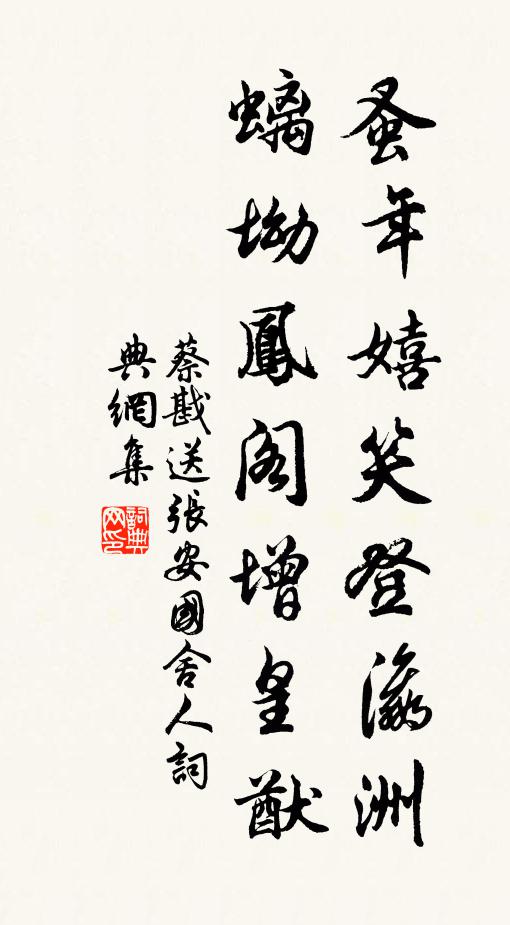 蚤年嬉笑登瀛洲
螭坳鳳阁增皇猷
蔡戡送張安國舍人詞
典網集
詞典網印